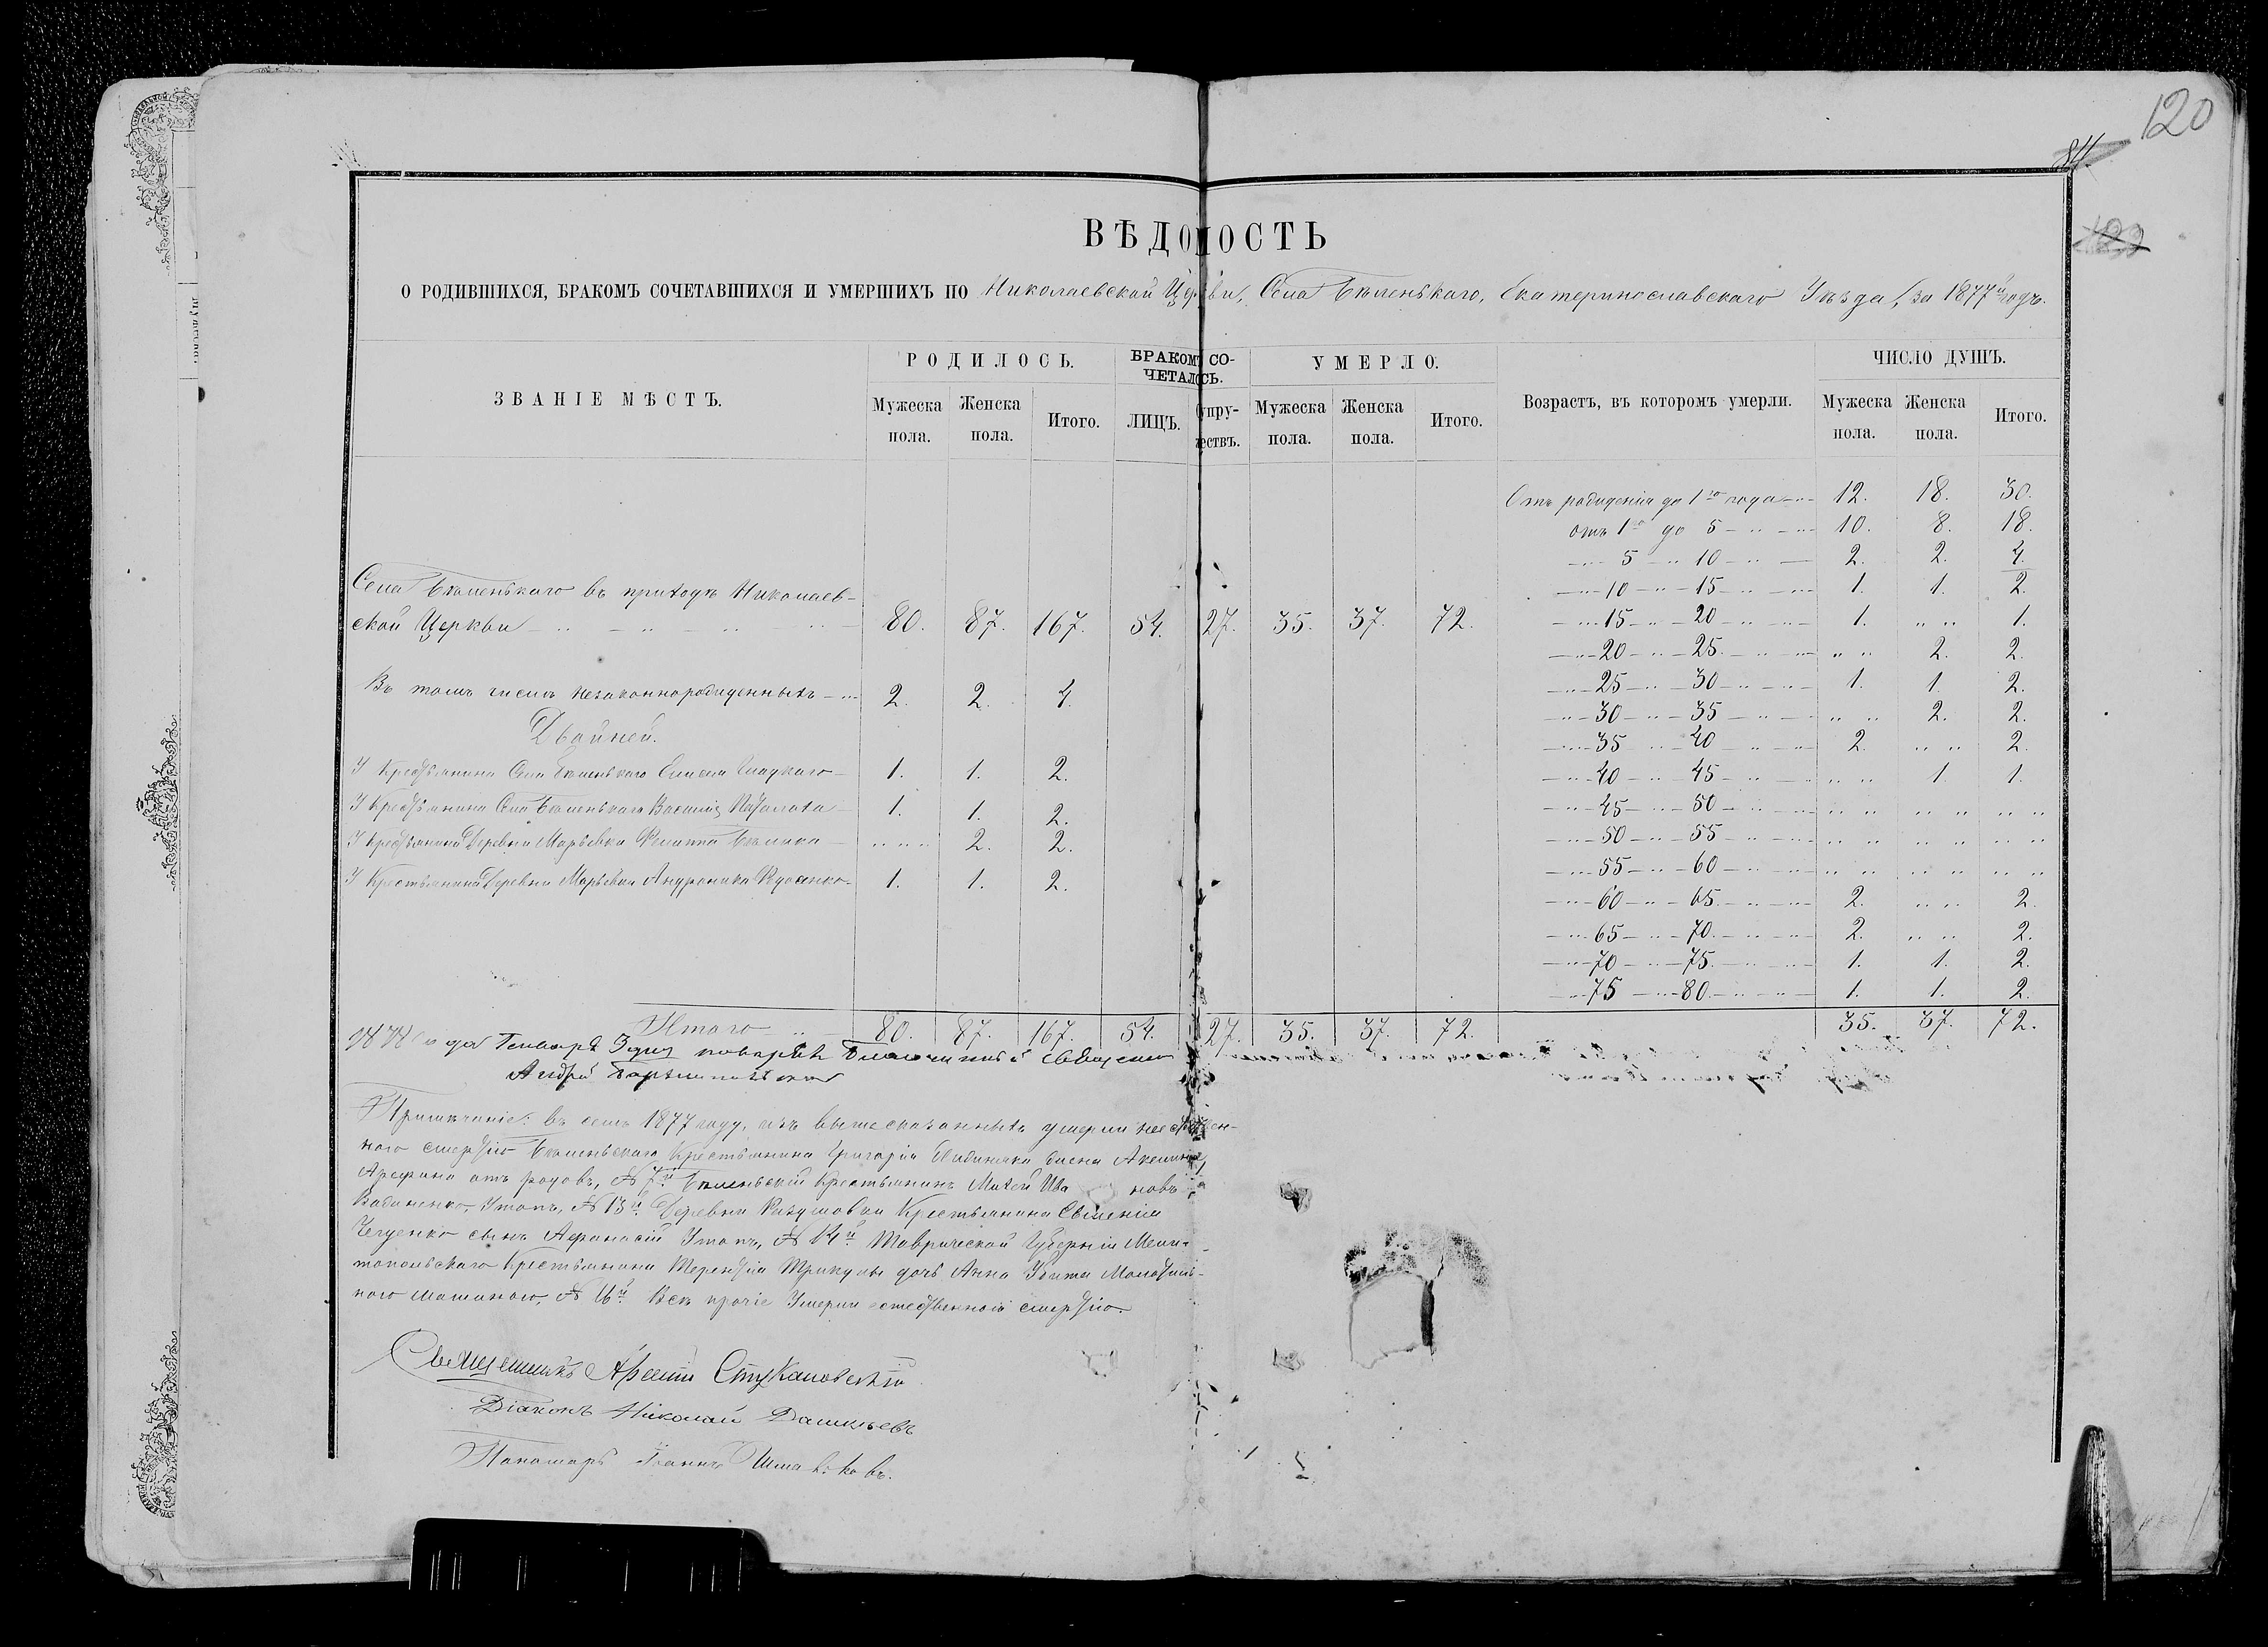 120
84.
ВѢДОМОСТЬ
О РОДИВШИХСЯ, БРАКОМЪ СОЧЕТАВШИХСЯ И УМЕРШИХЪ ПО Николаевской Церкви, Села Бѣленькаго, Екатеринославскаго Уѣзда, за 1877й годъ.
ЗВАНІЕ МѢСТЪ.
РОДИЛОСЬ.
БРАКОМЪ СО-
ЧЕТАЛОСЬ.
УМЕРЛО.
Возрастъ, въ которомъ умерли.
ЧИСЛО ДУШЪ.
Мужеска пола. Женска пола. Итого. ЛИЦЪ. Супру-жествъ. Мужеска пола. Женска пола. Итого. Мужеска пола. Женска пола. Итого.
Села Бѣленькаго въ приходѣ Николаев-
ской Церкви 80. 87. 167. 54. 27. 35. 37. 72.
Въ томъ числѣ незаконнорожденныхъ 2. 2. 4.
Двойней.
У Крестьянина Села Бѣленькаго Елисея Гладкаго 1. 1. 2.
У Крестьянина Села Бѣленькаго Василія 1. 1. 2.
У Крестьянина Деревни Марьевки Филиппа 2. 2.
У Крестьянина Деревни Марьевки Андроника 1. 1. 2.
Итого 80. 87. 167. 54. 27. 35. 37. 72.
Отъ рожденія до 1го года 12. 18. 30.
отъ 1го до 5 10. 8. 18.
5 " 10 2. 2. 4.
10 " 15 1. 1. 2.
15 " 20 1. " " 1.
20 " 25 " " 2. 2.
25 " 30 1. 1. 2.
30 " 35 " " 2. 2.
35 " 40 2. " " 2.
40 " 45 " " 1. 1.
45 " 50 " " " " " "
50 " 55 " " " " " "
55 " 60 " " " " " "
60 " 65 2. " " 2.
65 " 70 2. " " 2.
70 " 75 1. 1. 2.
75 " 80 1. 1. 2.
35. 37. 72.
года Генваря дня повѣрялъ Благочинный Священникъ
Андрей
Примѣчаніе: въ семъ 1877 году, изъ вышесказанныхъ умерли неестествен-
ною смертію Бѣленьскаго Крестьянина Григорія жена Акилина
отъ родовъ, № 7й Бѣленьскій Крестьянинъ Михей Ива новъ
Утопъ, № 13й Деревни Крестьянина
сынъ Афанасій Утопъ, № 14й Таврической Губерніи Мели-
топольскаго Крестьянина Терентія дочь Анна Убита Молотиль-
ною машиною, № 16й Всѣ прочіе Умерли естественною смертію.
Священникъ Арсеній Стукановскій
Діаконъ Николай
Пономарь Іоаннъ